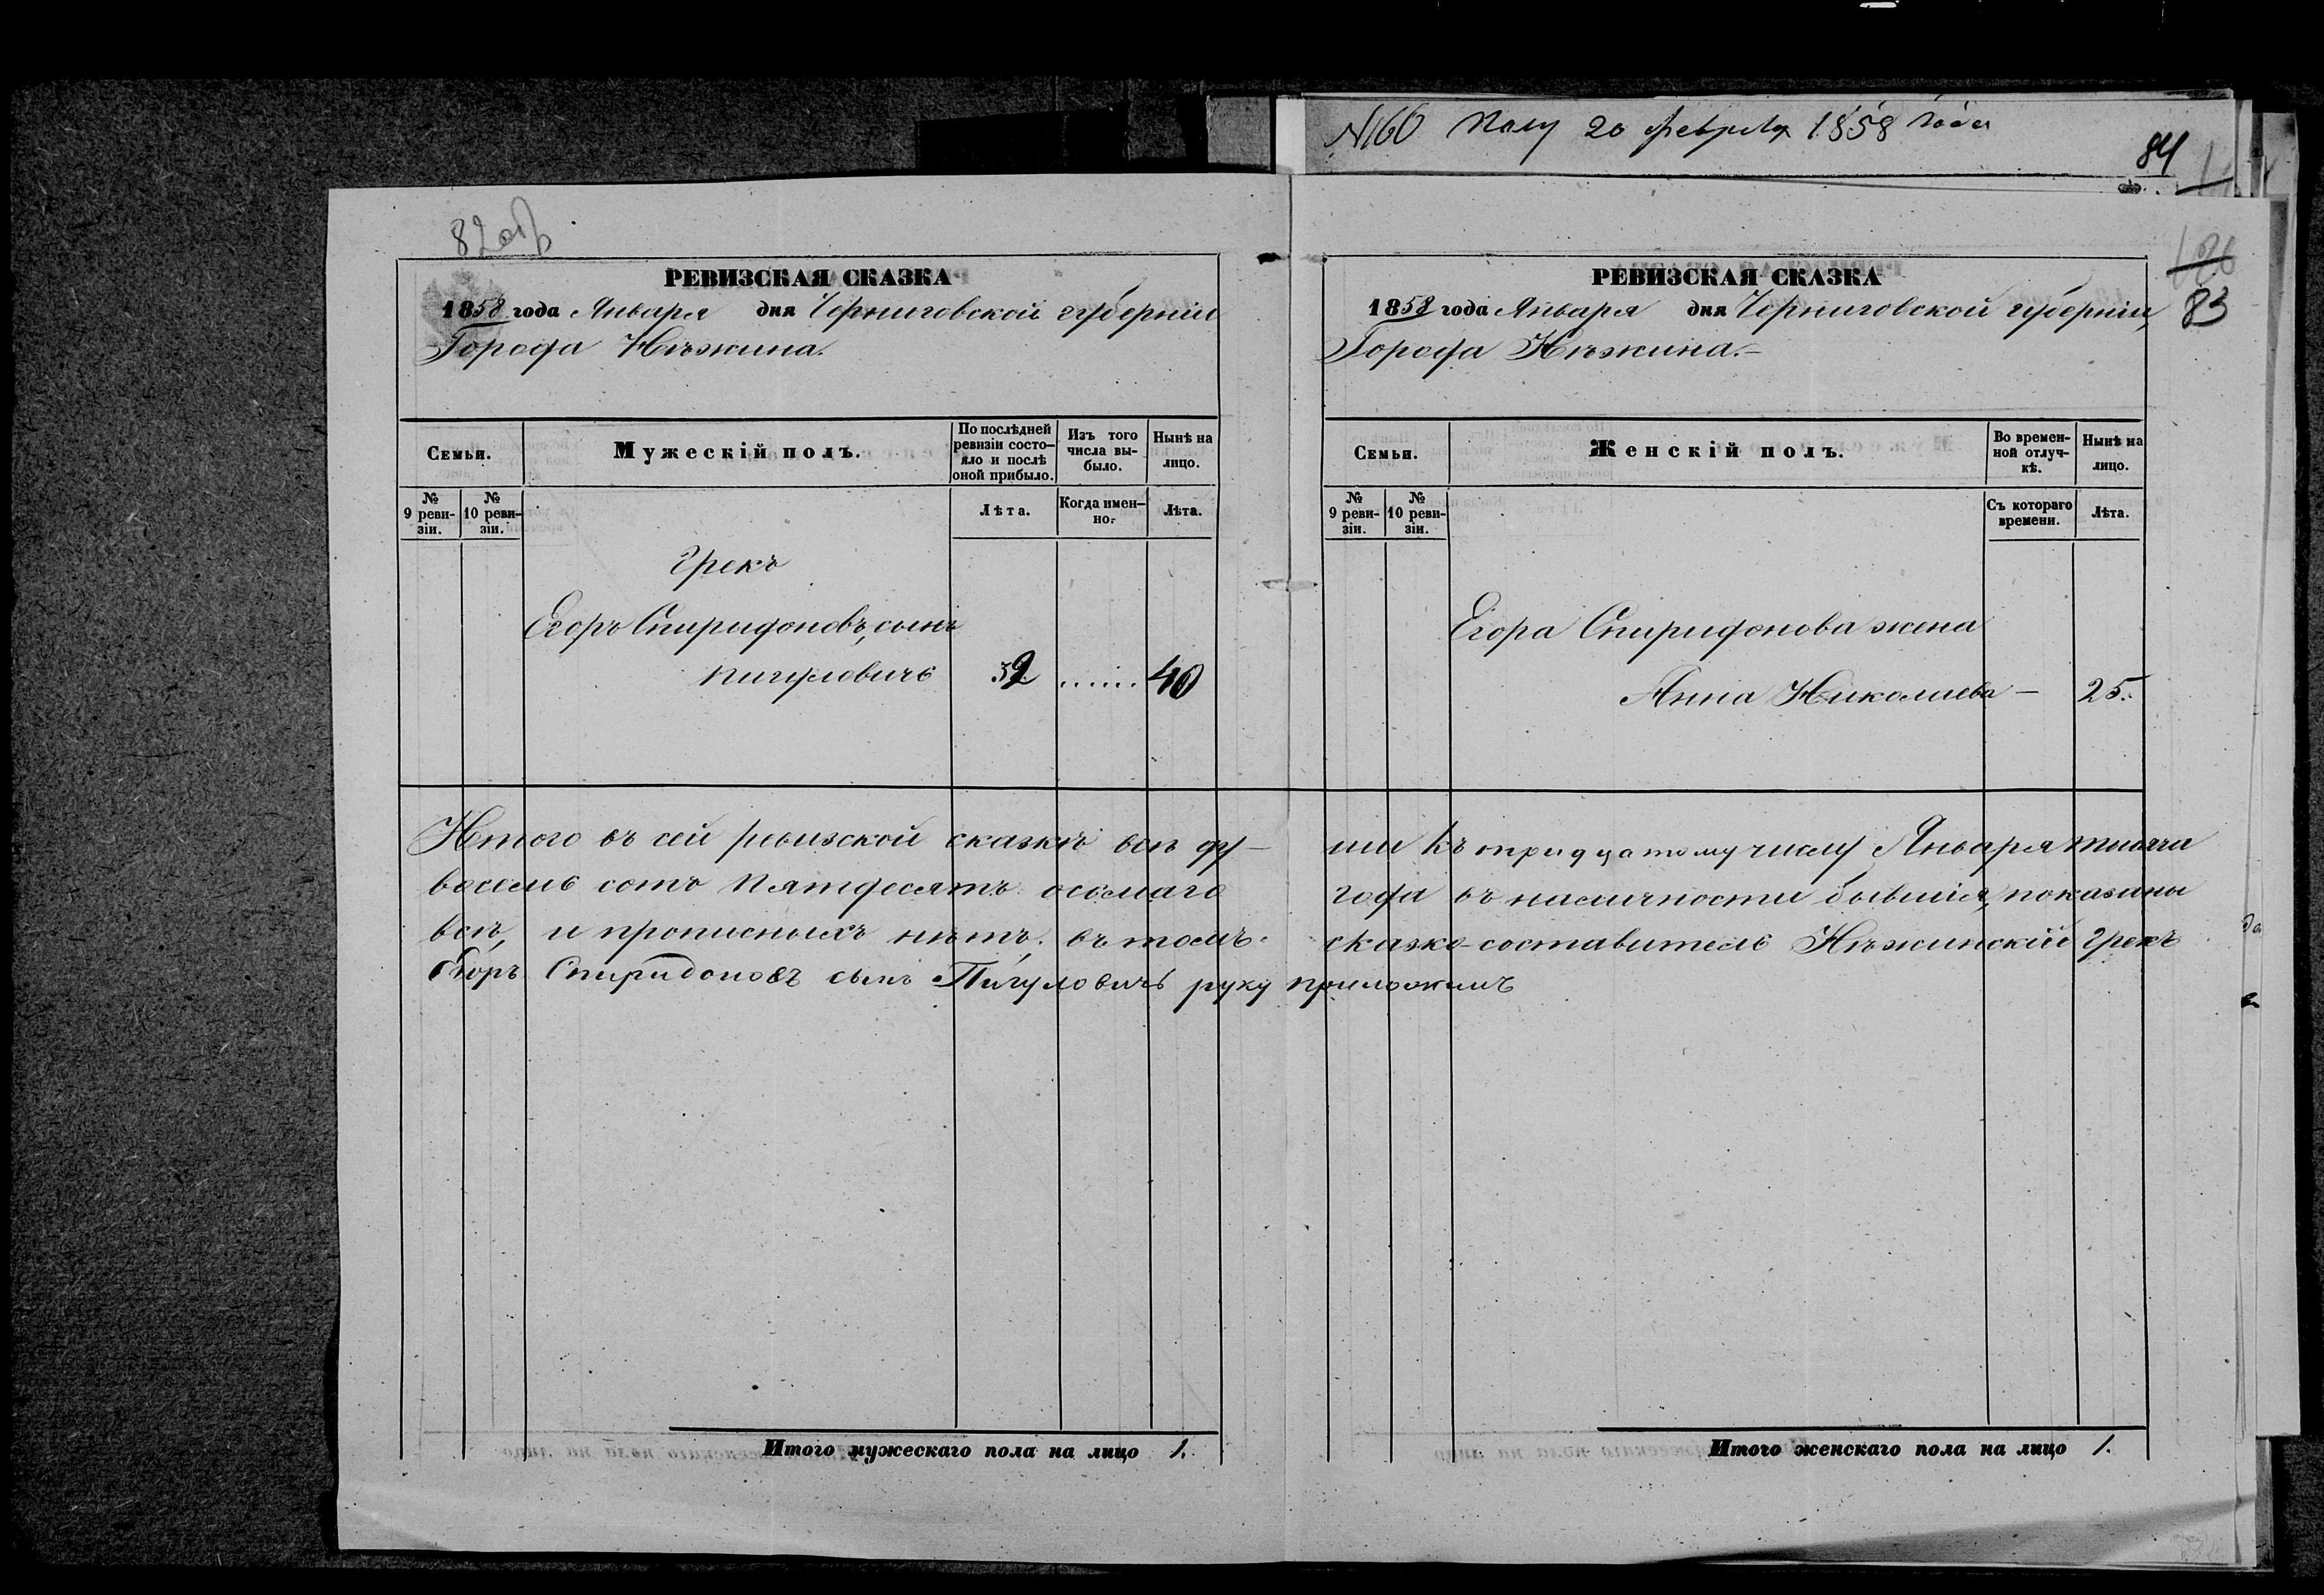 № 160 Полу 20 февраля 1858 года
84
82об
РЕВИЗСКАЯ СКАЗКА
1858 года Января дня Черниговской губерніи
Города Нѣжина.
Семьи.
Мужескій полъ.
По послѣдней ревизіи состо-яло и послѣ оной прибыло.
Изъ того числа вы-было.
Нынѣ на лицо.
№ 9 реви-зіи.
№ 10 реви-зіи.
Лѣта.
Когда имен-но.
Лѣта.
Грекъ
Егоръ Спиридоновъ, сынъ
Пигуловичъ 32 ...... 40
Итого въ сей ревизской сказкѣ всѣ ду-
восемь сотъ пятдесятъ осьмаго
всѣ, и прописныхъ нѣтъ. въ томъ.
Егоръ Спиридоновъ сынъ Пигуловичъ руку приложилъ
Итого мужескаго пола на лицо 1.
83
РЕВИЗСКАЯ СКАЗКА
1858 года Января дня Черниговской губерніи,
Города Нѣжина.-
Семьи.
Женскій полъ.
Во времен-ной отлуч-кѣ.
Нынѣ на лицо.
№ 9 реви-зіи.
№ 10 реви-зіи.
Съ котораго времени.
Лѣта.
Егора Спиридонова жена
Анна Николаева - 25.
ши къ тридцатому числу Января тысяча
года въ наличности бывшія, показаны
сказко-составитель Нѣжинскій Грекъ
Итого женскаго пола на лицо 1.